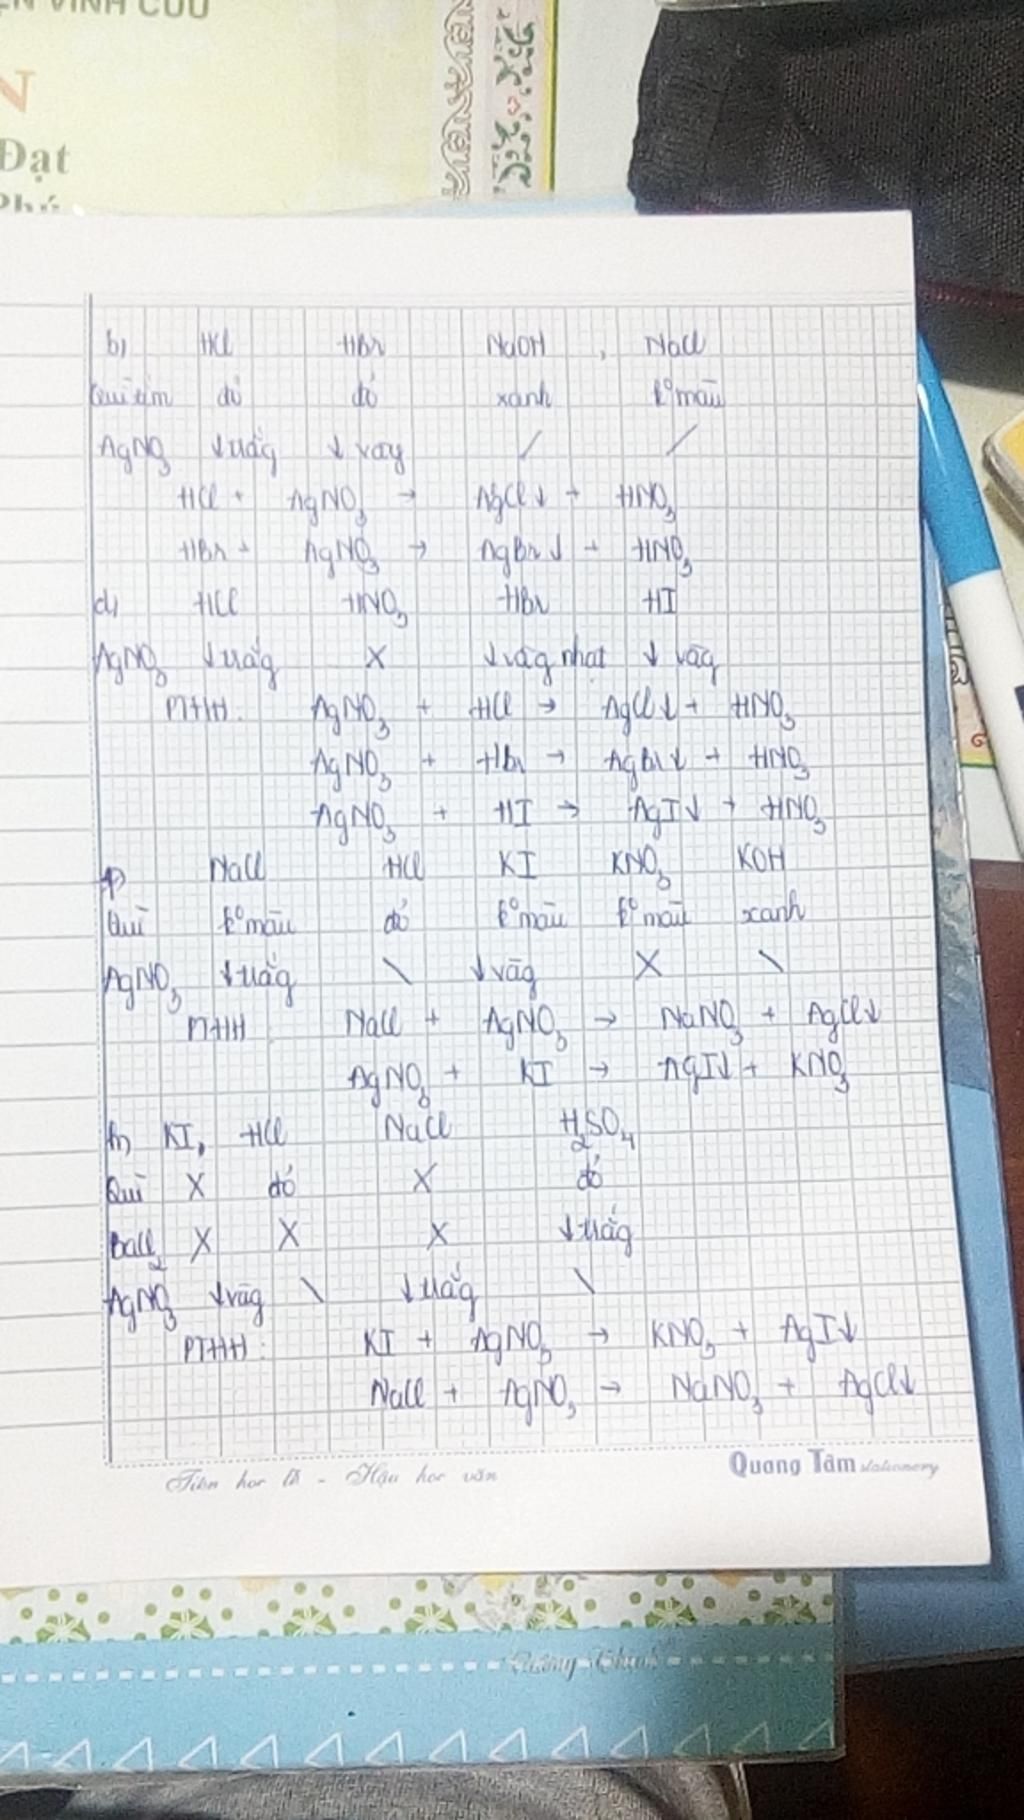 N VĨNH CỬU
N
Đạt
b) HCl HBr NaOH , NaCl
Quì tím đỏ đỏ xanh k° màu
AgNO3 ↓trắng ↓ vàng / /
HCl + AgNO3 → AgCl↓ + HNO3
HBr + AgNO3 → AgBr↓ + HNO3
d) HCl HNO3 HBr HI
AgNO3 ↓trắng X ↓vàng nhạt ↓ vàng
PTHH: AgNO3 + HCl → AgCl↓ + HNO3
AgNO3 + HBr → AgBr↓ + HNO3
AgNO3 + HI → AgI↓ + HNO3
f) NaCl HCl KI KNO3 KOH
Quì k° màu đỏ k° màu k° màu xanh
AgNO3 ↓trắng \ ↓vàng X \
PTHH NaCl + AgNO3 → NaNO3 + AgCl↓
AgNO3 + KI → AgI↓ + KNO3
h) KI, HCl NaCl H2SO4
Quì X đỏ X đỏ
BaCl2 X X X ↓trắng
AgNO3 ↓vàng \ ↓trắng \
PTHH: KI + AgNO3 → KNO3 + AgI↓
NaCl + AgNO3 → NaNO3 + AgCl↓
Tiên học lễ - Hậu học văn Quang Tâm stationery